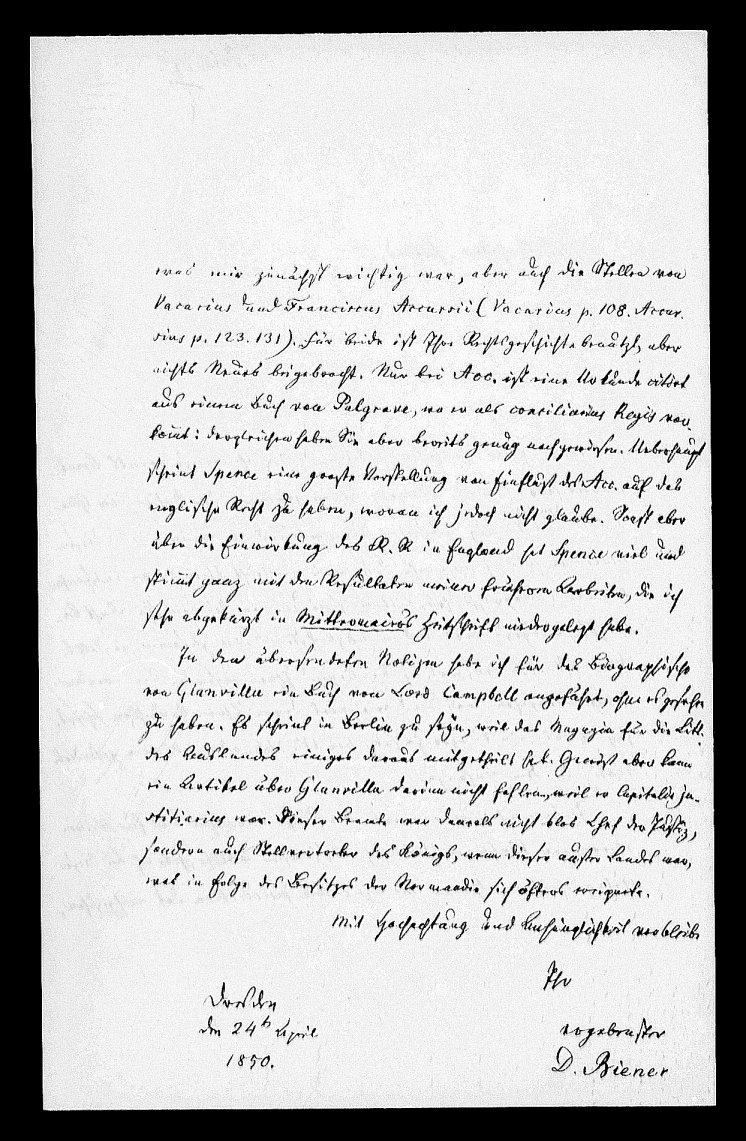 was mir zunächst wichtig war, aber auch die Stellen von
Vacarius und Franciscus Accursii (Vacarius p. 108. Accur-
sius p. 123. 131). Für beide ist Ihre Rechtsgeschichte benutzt, aber
nichts Neues beigebracht. Nur bei Acc. ist eine Urkunde citirt
aus einem Buch von Palgrave, wo er als consiliarius Regis vor-
kommt: dergleichen haben Sie aber bereits genug nachgewiesen. Ueberhaupt
scheint Spence eine große Vorstellung von Einfluß des Acc. auf das
englische Recht zu haben, woran ich jedoch nicht glaube. Sonst aber
über die Einwirkung des R. R in England hat Spence viel und
stimmt ganz mit den Resultaten meiner früheren Arbeiten, die ich
sehr abgekürzt in Mittermaiers Zeitschrift niedergelegt habe.
In den übersendeten Notizen habe ich für das Biographische
von Glanvilla ein Buch von Lord Campbell angeführt, ohne es gesehen
zu haben. Es scheint in Berlin zu seyn, weil das Magazin für die Litt.
des Auslandes einiges daraus mitgetheilt hat. Gewiß aber kann
ein Artikel über Glanvilla darinn nicht fehlen, weil er Capitalis ju-
stitiarius war. Dieser Beamte war damals nicht blos Chef der Justiz,
sondern auch Stellvertreter des Königs, wenn dieser außer Landes war,
was in Folge des Besitzes der Normandie sich öfters ereignete.
Mit Hochachtung und Anhänglichkeit verbleibe
Ihr
Dresden
den 24n April
ergebenster
1850.
D. Biener